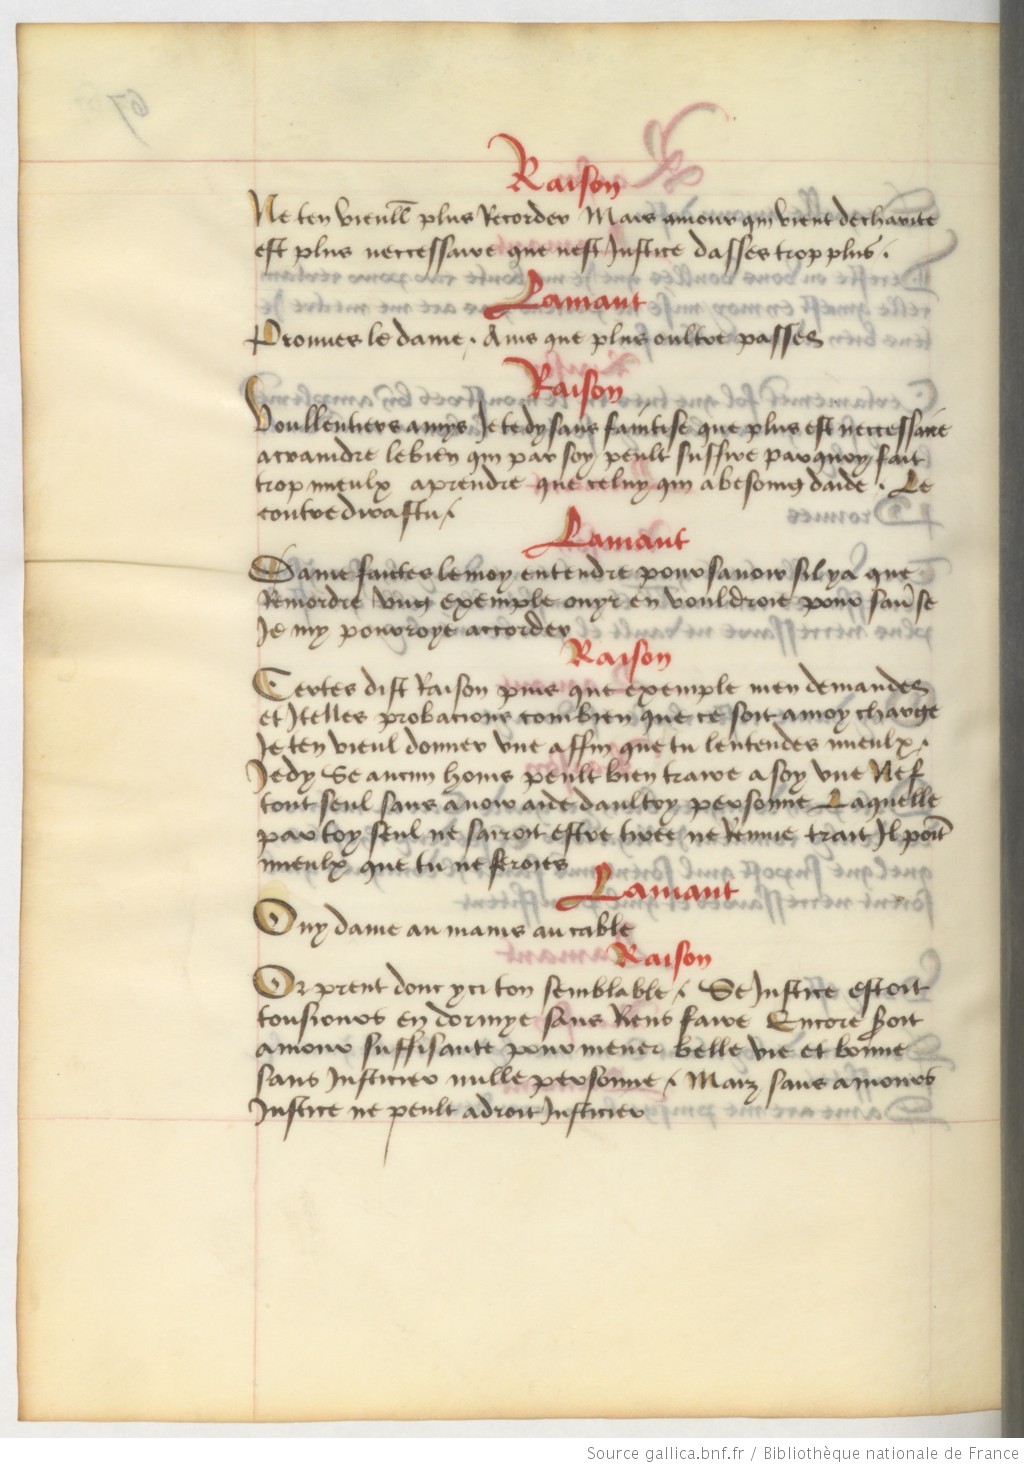 Raison
Ne ten vieull plus Recorder Mais amour qui vient de charite
est plus neccessaire que nest Justice dasses trop plus.
Lamant
Prouues le dame. Ains que plus oultre passes
Raison
Voullentiers amys Je te dy sans faintise que plus est neccessaire
a craindre le bien qui par soy peult suffire parquoy fait
trop mieulx aprendre que celuy qui a besoing daide. Le
contredirastu /.
Lamant
Dame faictes le moy entendre pour sauoir sil y a que
Remordre Vng exemple ouyr en vouldroie pour sauoir se
Je my pourroye accorder
Raison
Certes dist Raison puis que exemple men demandes
et Jtelles probacions combien que ce soit a moy charge
Je ten vieul donner vne affin que tu lentendes mieulx.
Je dy Se aucun homs peult bien traire a soy vne Nef
tout seul sans auoir aide daultry personne Laquelle
par toy seul ne sarroit estre tiree ne Remue trait Jl point
mieulx que tu ne feroies
Lamant
Ouy dame au mains au cable
Raison
Or prent donc yci ton semblable /. Se Justice estoit
tousiours en dormye sans Riens faire Encore seroit
amour suffisante pour mener belle vie et bonne
sans Justicier nulle personne /. Maiz sans amours
Justice ne peult adroit Justicier
Source gallica.bnf.fr / Bibliothèque nationale de France